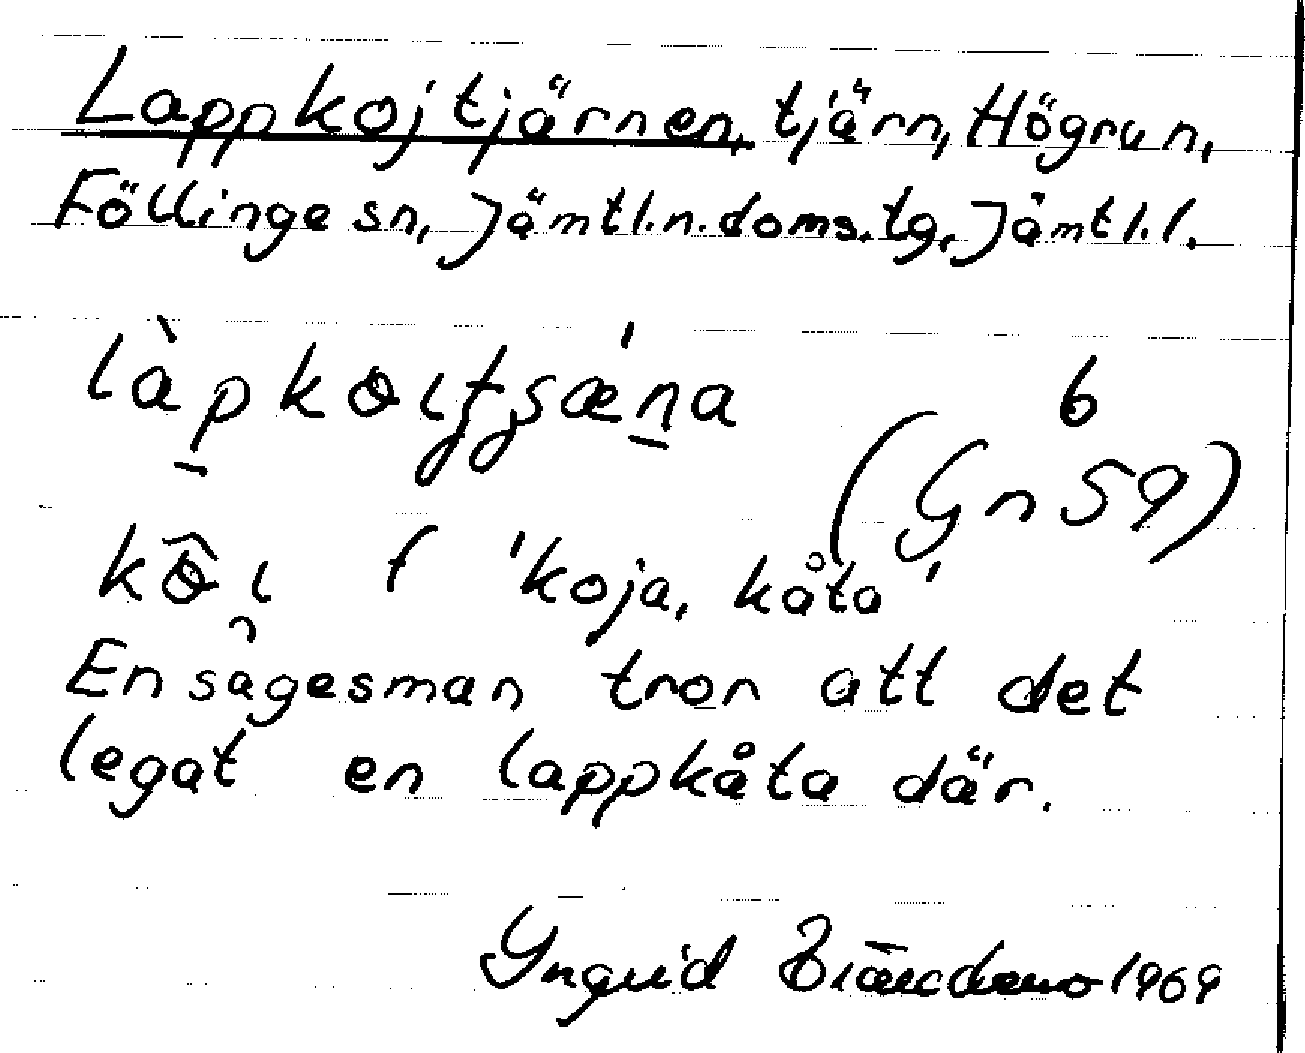 Lappkojtjärnen, tjärn, Högrun,
Föllinge sn, Jämtl.n.doms.tg, Jämtl.l.
b
(Gn 59)
f 'koja, kåta'
En sagesman tror att det
legat en lappkåta där.
Yngvid 1969